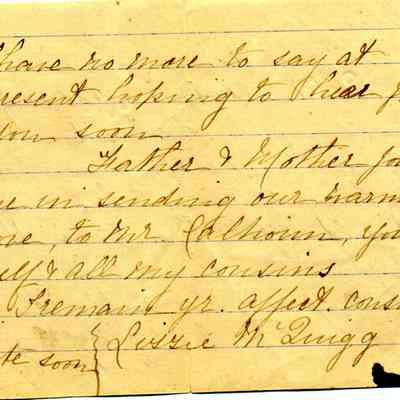 have no more to say at
resent hoping to hear f
you soon
Father & Mother jo
e in sending our warm
ove, to Mr. Calhoun, yo
self & all my cousins
I remain yr. affect. cousi
te soon { Lizzie McQuigg